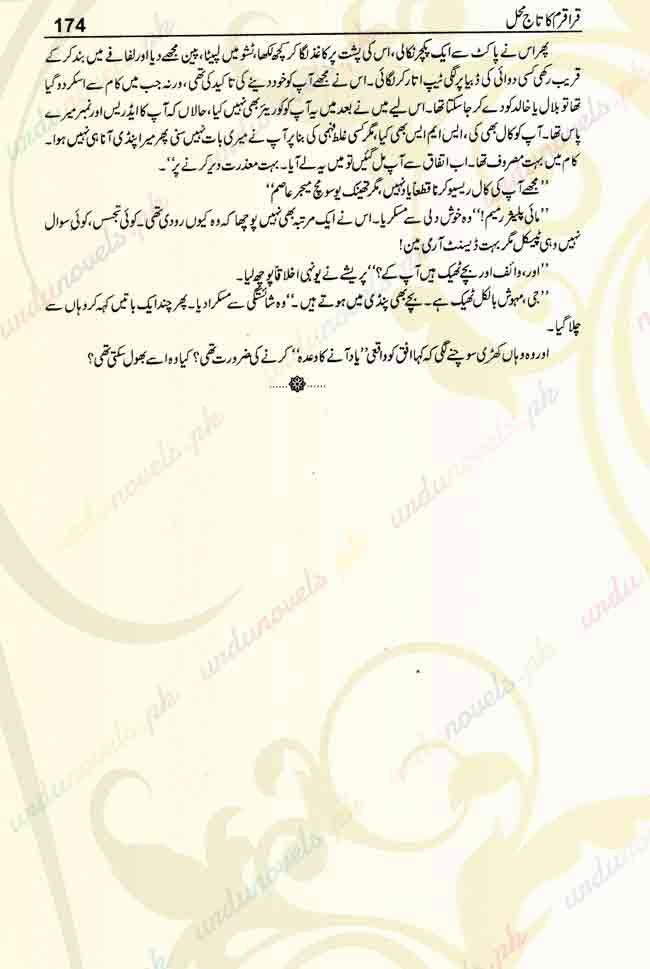 174
قراقرم کا تاج محل
پھر اس نے پاکٹ سے ایک پکچر نکالی، اس کی پشت پر کاغذ لگا کر کچھ لکھا، ٹشو میں لپیٹا، پین مجھے دیا اور لفافے میں بند کر کے
قریب رکھی کسی دوائی کی ڈبیا پر لگی ٹیپ اتار کر لگائی۔ اس نے مجھے آپ کو خود دینے کی تاکید کی تھی، ورنہ جب میں کام سے اسکردو گیا
تھا تو بلال یا خالد کو دے کر جا سکتا تھا۔ اس لیے میں نے بعد میں یہ آپ کو کوریئر بھی نہیں کیا، حالاں کہ آپ کا ایڈریس اور نمبر میرے
پاس تھا۔ آپ کو کال بھی کی، ایس ایم ایس بھی کیا، مگر کسی غلط فہمی کی بنا پر آپ نے میری بات نہیں سنی پھر میرا پنڈی آنا ہی نہیں ہوا۔
کام میں بہت مصروف تھا۔ اب اتفاق سے آپ مل گئیں تو میں یہ لے آیا۔ بہت معذرت دیر کرنے پر‘‘۔
’’مجھے آپ کی کال ریسیو کرنا قطعاً یاد نہیں، مگر تھینک یو سو مچ میجر عاصم‘‘
’’مائی پلیئژر میم!‘‘ وہ خوش دلی سے مسکرایا۔ اس نے ایک مرتبہ بھی نہیں پوچھا کہ وہ کیوں رو دی تھی۔ کوئی تجسس، کوئی سوال
نہیں وہی ٹیپکل مگر بہت ڈیسنٹ آرمی مین!
’’اور، وائف اور بچے ٹھیک ہیں آپ کے؟‘‘ پریشے نے یونہی اخلاقاً پوچھ لیا۔
’’جی، مہوش بالکل ٹھیک ہے۔ بچے بھی پنڈی میں ہوتے ہیں۔‘‘ وہ شائستگی سے مسکرا دیا۔ پھر چند ایک باتیں کہہ کر وہاں سے
چلا گیا۔
اور وہ وہاں کھڑی سوچنے لگی کہ کہا افق کو واقعی ’’یاد آنے کا وعدہ‘‘ کرنے کی ضرورت تھی؟ کیا وہ اسے بھول سکتی تھی؟
urdunovels.pk
urdunovels.pk
urdunovels.pk
urdunovels.pk
urdunovels.pk
urdunovels.pk
urdunovels.pk